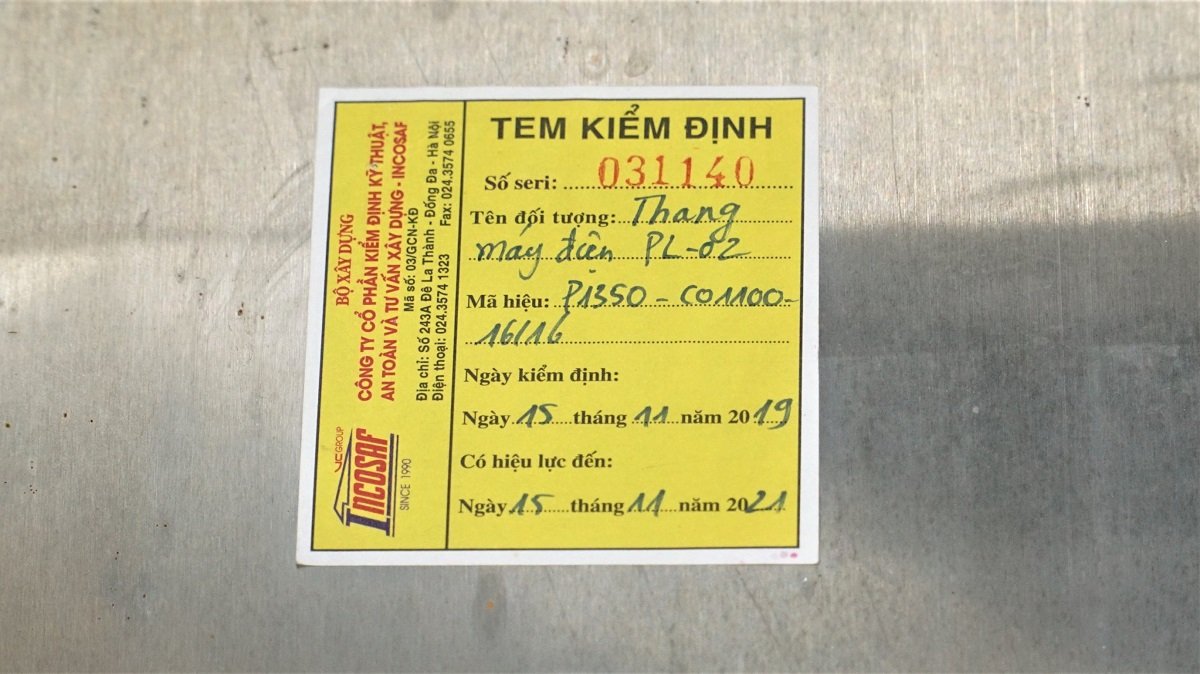 BỘ XÂY DỰNG
CÔNG TY CỔ PHẦN KIỂM ĐỊNH KỸ THUẬT,
AN TOÀN VÀ TƯ VẤN XÂY DỰNG - INCOSAF
Mã số: 03/GCN-KĐ
Địa chỉ: Số 243A Đê La Thành - Đống Đa - Hà Nội
Điện thoại: 024.3574 1323 Fax: 024.3574 0655
VC GROUP
INCOSAF
SINCE 1990
TEM KIỂM ĐỊNH
Số seri: 031140
Tên đối tượng: Thang
máy điện PL-02
Mã hiệu: P1350-CO1100-
16/16
Ngày kiểm định:
Ngày 15 tháng 11 năm 2019
Có hiệu lực đến:
Ngày 15 tháng 11 năm 2021